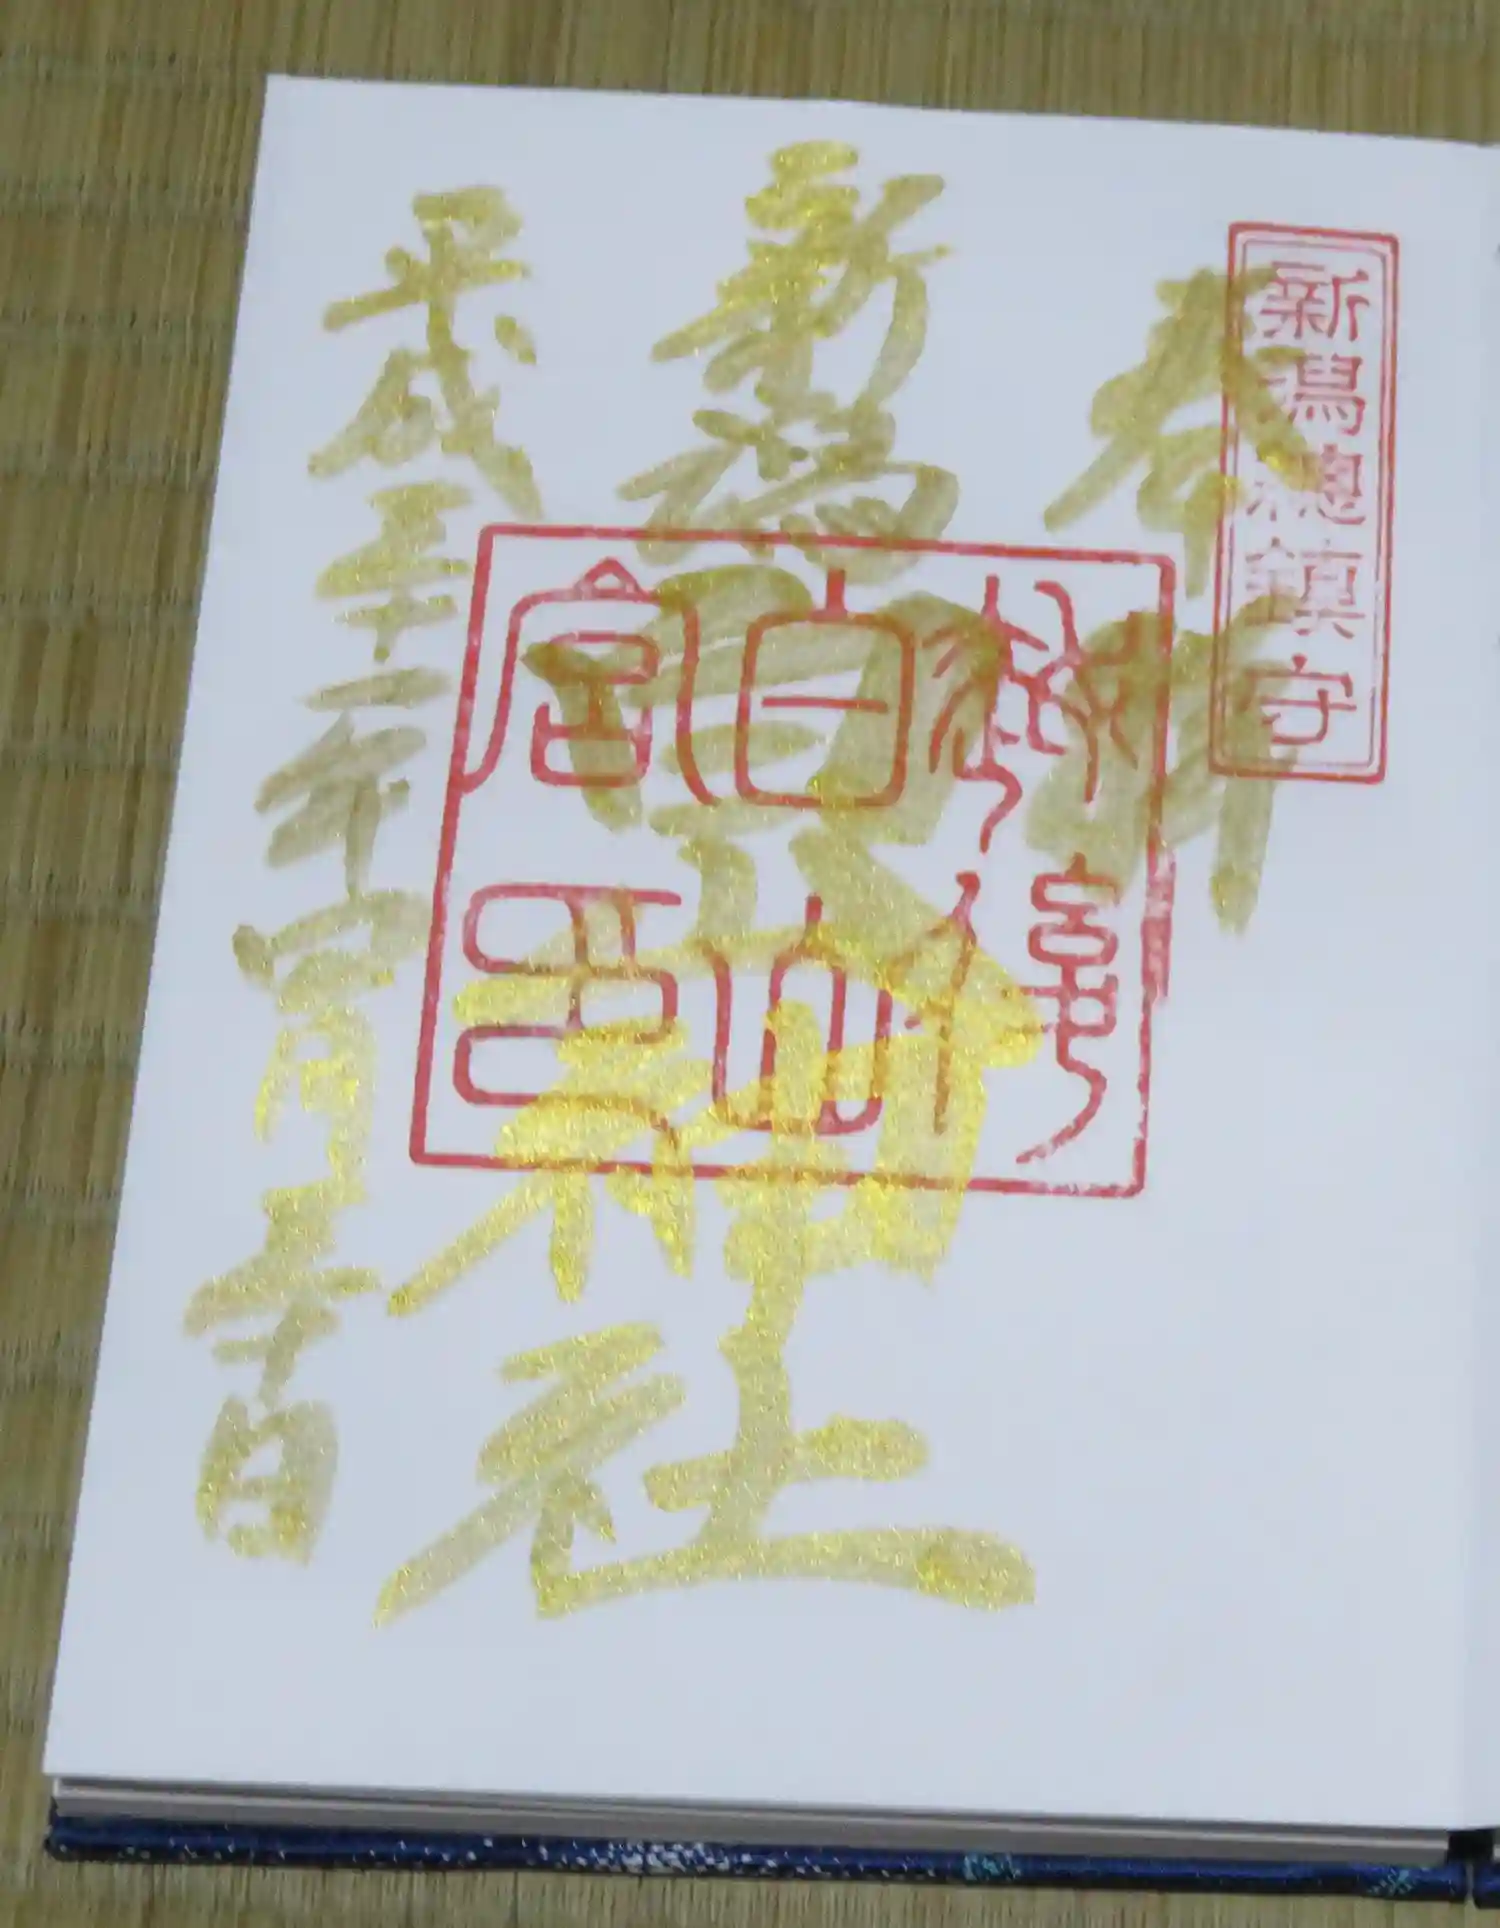 奉拝
新潟總鎮守
新潟白山神社
越後白山宮印
平成三十一年四月三十日